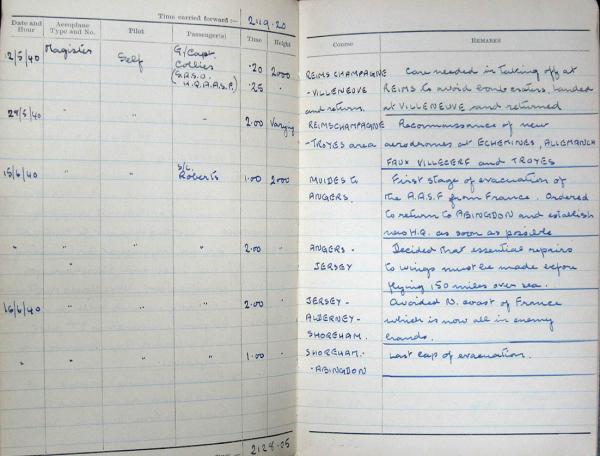 Time carried forward :— 219.20
Date and Hour Aeroplane Type and No. Pilot Passenger(s) Time Height Course REMARKS
12/5/40 Magister Self G/Capt. .20 2000 REIMS CHAMPAGNE Care needed in taking off at
Collies -VILLENEUVE REIMS to avoid bomb craters. Landed
(S.A.S.O. .25 " and return. at VILLENEUVE and returned
H.Q. A.A.S.F.)
29/5/40 " " 2.00 Varying REIMS CHAMPAGNE Reconnaissance of new
-TROYES area aerodromes at ECHEMINES, ALLEMANCH
FAUX VILLECERF and TROYES
15/6/40 " " S/L. Roberts 1.00 2000 MUIDES to First stage of evacuation of
ANGERS. the A.A.S.F from France. Ordered
to return to ABINGDON and establish
new H.Q. as soon as possible
" " " " 2.00 " ANGERS - Decided that essential repairs
" JERSEY to wings must be made before
flying 150 miles over sea.
16/6/40 " " " 2.00 " JERSEY - Avoided N. coast of France
ALDERNEY - which is now all in enemy
SHOREHAM. hands.
" " " 1.00 " SHOREHAM. - Last lap of evacuation.
-ABINGDON
228.05